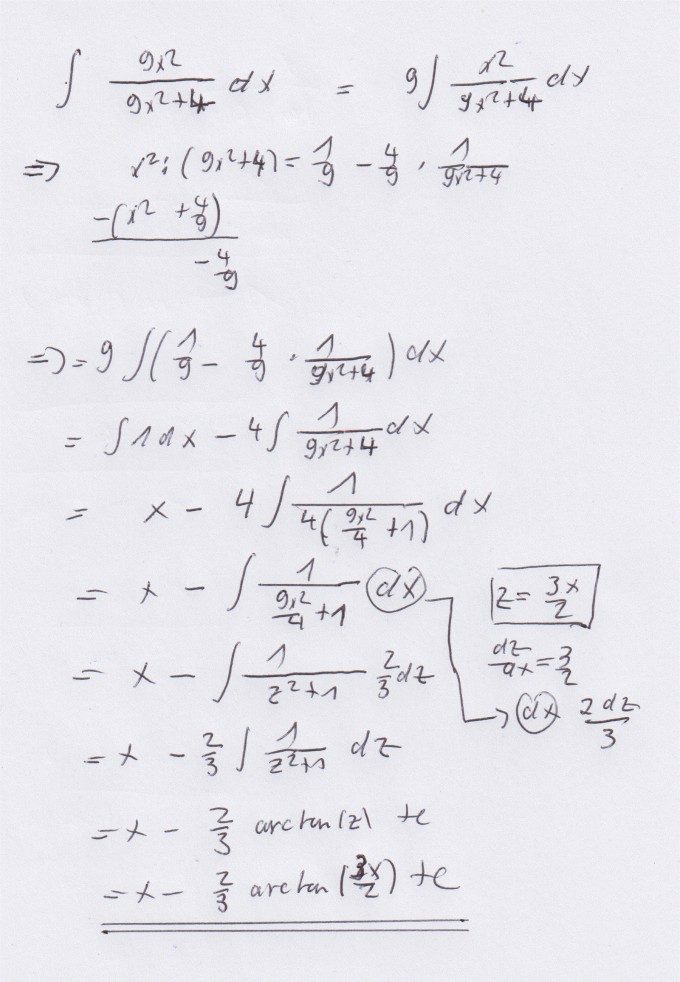 ∫ 9x²/(9x²+4) dx = 9∫ x²/(9x²+4) dx
=> x² : (9x²+4) = 1/9 - 4/9 · 1/(9x²+4)
-(x² + 4/9)
- 4/9
=> = 9 ∫(1/9 - 4/9 · 1/(9x²+4)) dx
= ∫1dx - 4∫ 1/(9x²+4) dx
= x - 4∫ 1/(4(9x²/4 + 1)) dx
= x - ∫ 1/(9x²/4 + 1) dx z = 3x/2
= x - ∫ 1/(z²+1) 2/3 dz dz/dx = 3/2
→ dx 2dz/3
= x - 2/3 ∫ 1/(z²+1) dz
= x - 2/3 arctan(z) +c
= x - 2/3 arctan(3x/2) +c